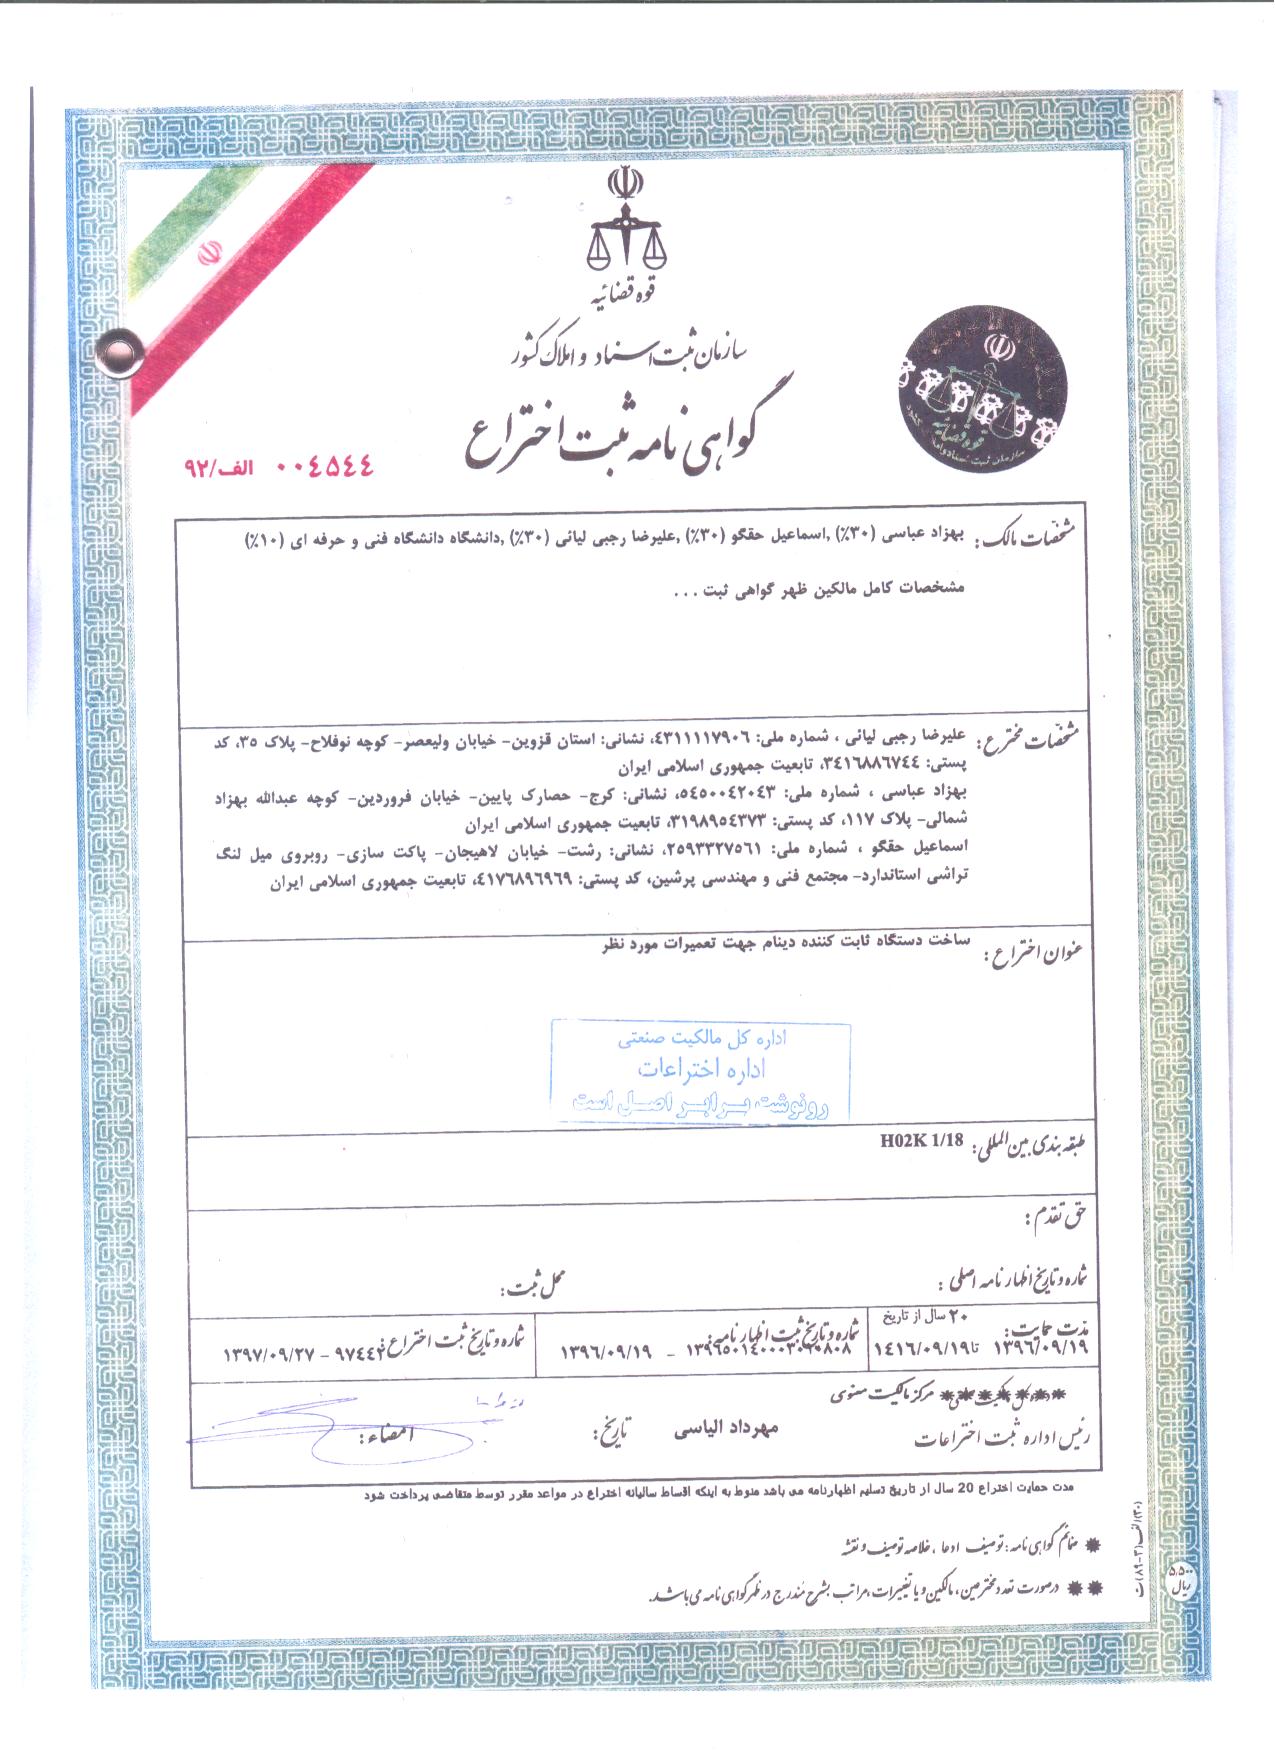 قوه قضائیه
سازمان ثبت اسناد و املاک کشور
گواهی نامه ثبت اختراع
قوه قضائیه
سازمان ثبت اسناد و املاک کشور
۰۰٤٥٤٤ الف/۹۲
مشخصات مالک: بهزاد عباسی (۳۰٪) ,اسماعیل حقگو (۳۰٪) ,علیرضا رجبی لیائی (۳۰٪) ,دانشگاه دانشگاه فنی و حرفه ای (۱۰٪)
مشخصات کامل مالکین ظهر گواهی ثبت ...
مشخصات مخترع: علیرضا رجبی لیائی ، شماره ملی: ٤۳۱۱۱۱۷۹۰٦، نشانی: استان قزوین- خیابان ولیعصر- کوچه نوفلاح- پلاک ۳۵، کد
پستی: ۳٤۱٦۸۸٦۷٤٤، تابعیت جمهوری اسلامی ایران
بهزاد عباسی ، شماره ملی: ٥٤٥۰۰٤۲۰٤۳، نشانی: کرج- حصارک پایین- خیابان فروردین- کوچه عبدالله بهزاد
شمالی- پلاک ۱۱۷، کد پستی: ۳۱۹۸۹٥٤۳۷۳، تابعیت جمهوری اسلامی ایران
اسماعیل حقگو ، شماره ملی: ۲٥۹۳۳۲۷٥٦۱، نشانی: رشت- خیابان لاهیجان- پاکت سازی- روبروی میل لنگ
تراشی استاندارد- مجتمع فنی و مهندسی پرشین، کد پستی: ٤۱۷٦۸۹٦۹٦۹، تابعیت جمهوری اسلامی ایران
عنوان اختراع: ساخت دستگاه ثابت کننده دینام جهت تعمیرات مورد نظر
اداره کل مالکیت صنعتی
اداره اختراعات
رونوشت برابر اصل است
طبقه بندی بین المللی: H02K 1/18
حق تقدم:
شماره و تاریخ اظهارنامه اصلی: محل ثبت:
مدت حمایت: ۲۰ سال از تاریخ
۱۳۹٦/۰۹/۱۹ تا ۱٤۱٦/۰۹/۱۹
شماره و تاریخ ثبت اظهارنامه:
۱۳۹٦/۰۹/۱۹
شماره و تاریخ ثبت اختراع:
۱۳۹۷/۰۹/۲۷
مرکز مالکیت معنوی
رئیس اداره ثبت اختراعات مهرداد الیاسی تاریخ: امضاء:
مدت حمایت اختراع 20 سال از تاریخ تسلیم اظهارنامه می باشد منوط به اینکه اقساط سالیانه اختراع در مواعد مقرر توسط متقاضی پرداخت شود
✸ ضمائم گواهی نامه: توصیف ادعا، خلاصه توصیف و نقشه
✸✸ درصورت تعدد مخترعین، مالکین و یا تغییرات، مراتب بشرح مندرج در ظهر گواهی نامه می باشد.
۵,۵۰۰
ریال